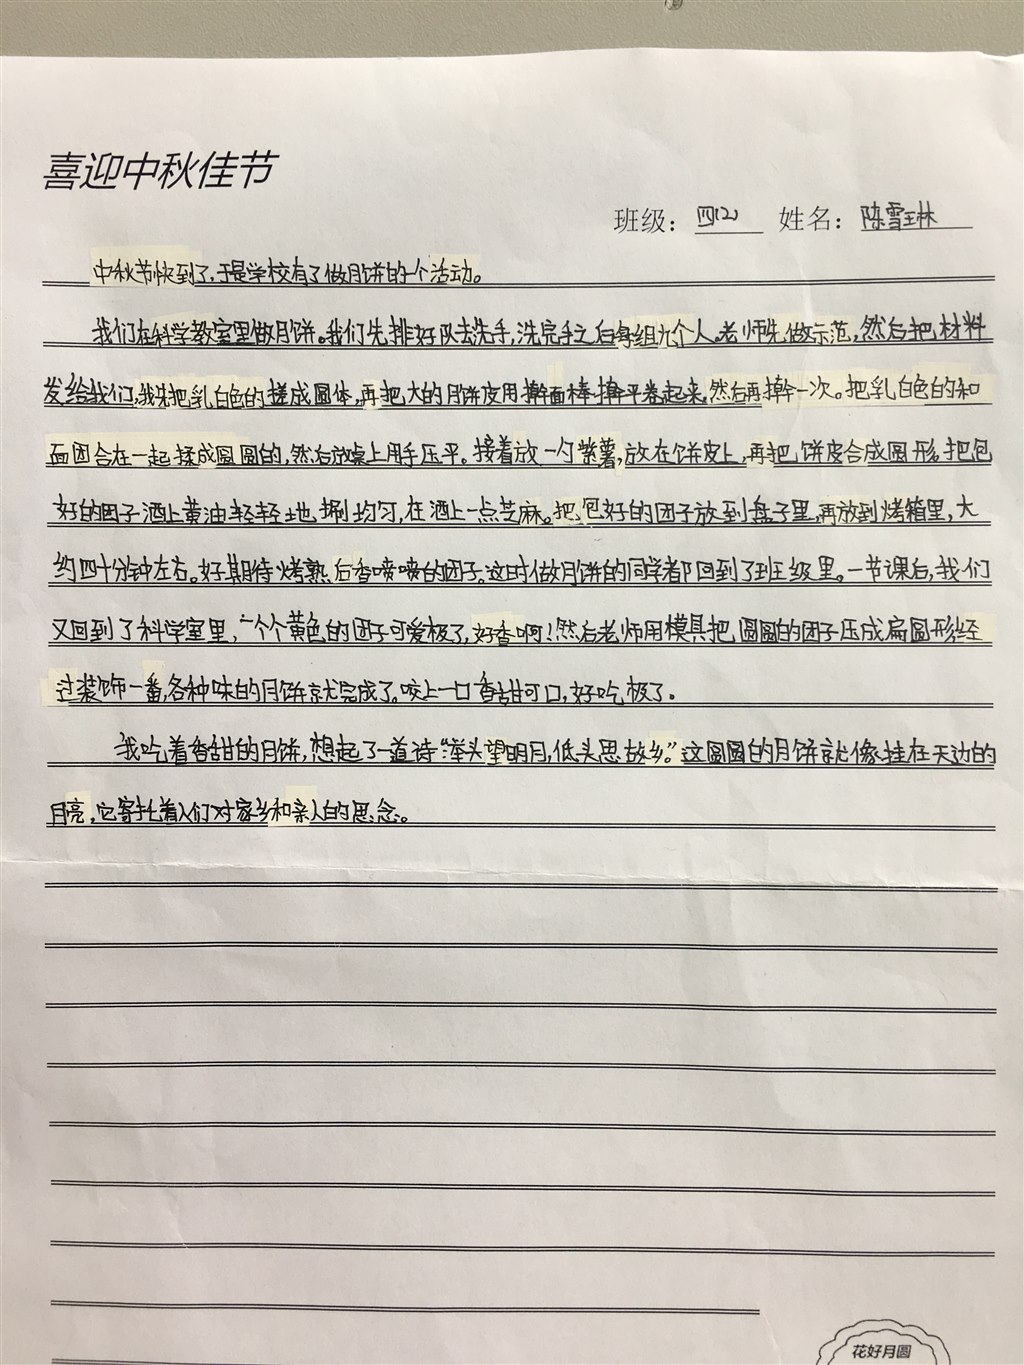 喜迎中秋佳节
班级：四(2) 姓名：陈雪琳
中秋节快到了，于是学校有了做月饼的个活动。
我们在科学教室里做月饼。我们先排好队去洗手，洗完手之后每组九个人。老师先做示范，然后把材料
发给我们，我先把乳白色的搓成圆体，再把大的月饼皮用擀面棒擀平卷起来，然后再擀一次。把乳白色的和
面团合在一起揉成圆圆的，然后放桌上用手压平。接着放一勺紫薯，放在饼皮上，再把饼皮合成圆形。把包
好的团子洒上黄油轻轻地捌均匀，在洒上一点芝麻。把包好的团子放到盘子里，再放到烤箱里，大
约四十分钟左右。好期待烤熟后香喷喷的团子。这时做月饼的同学都回到了班级里。一节课后，我们
又回到了科学室里，一个个黄色的团子可爱极了，好香啊！然后老师用模具把圆圆的团子压成扁圆形，经
过装饰一番，各种味的月饼就完成了。咬上一口香甜可口，好吃极了。
我吃着香甜的月饼，想起了一道诗“举头望明月，低头思故乡。”这圆圆的月饼就像挂在天边的
月亮，它寄托着人们对家乡和亲人的思念。
花好月圆